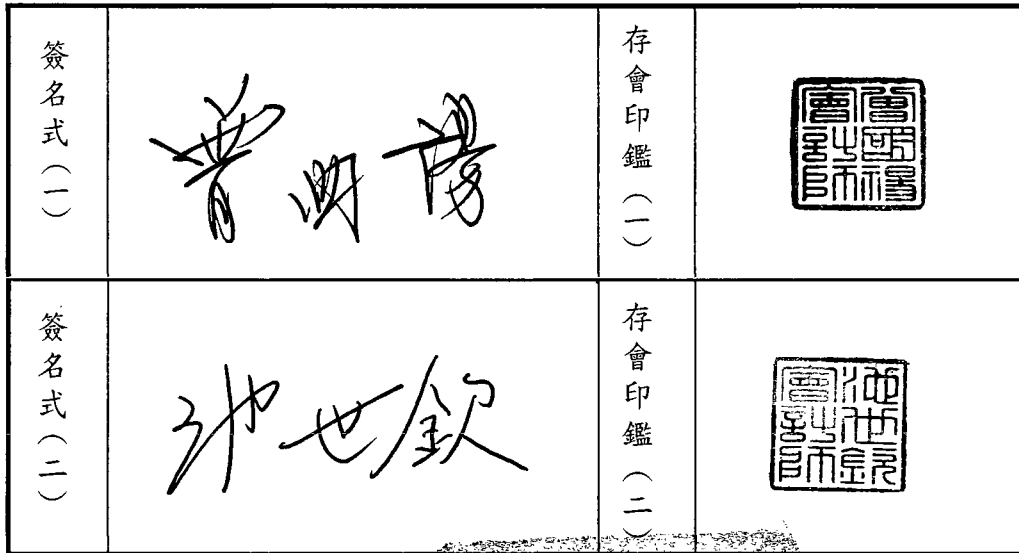 簽名式(一)
曾國禓
存會印鑑(一)
曾國禓會計師
簽名式(二)
池世欽
存會印鑑(二)
池世欽會計師